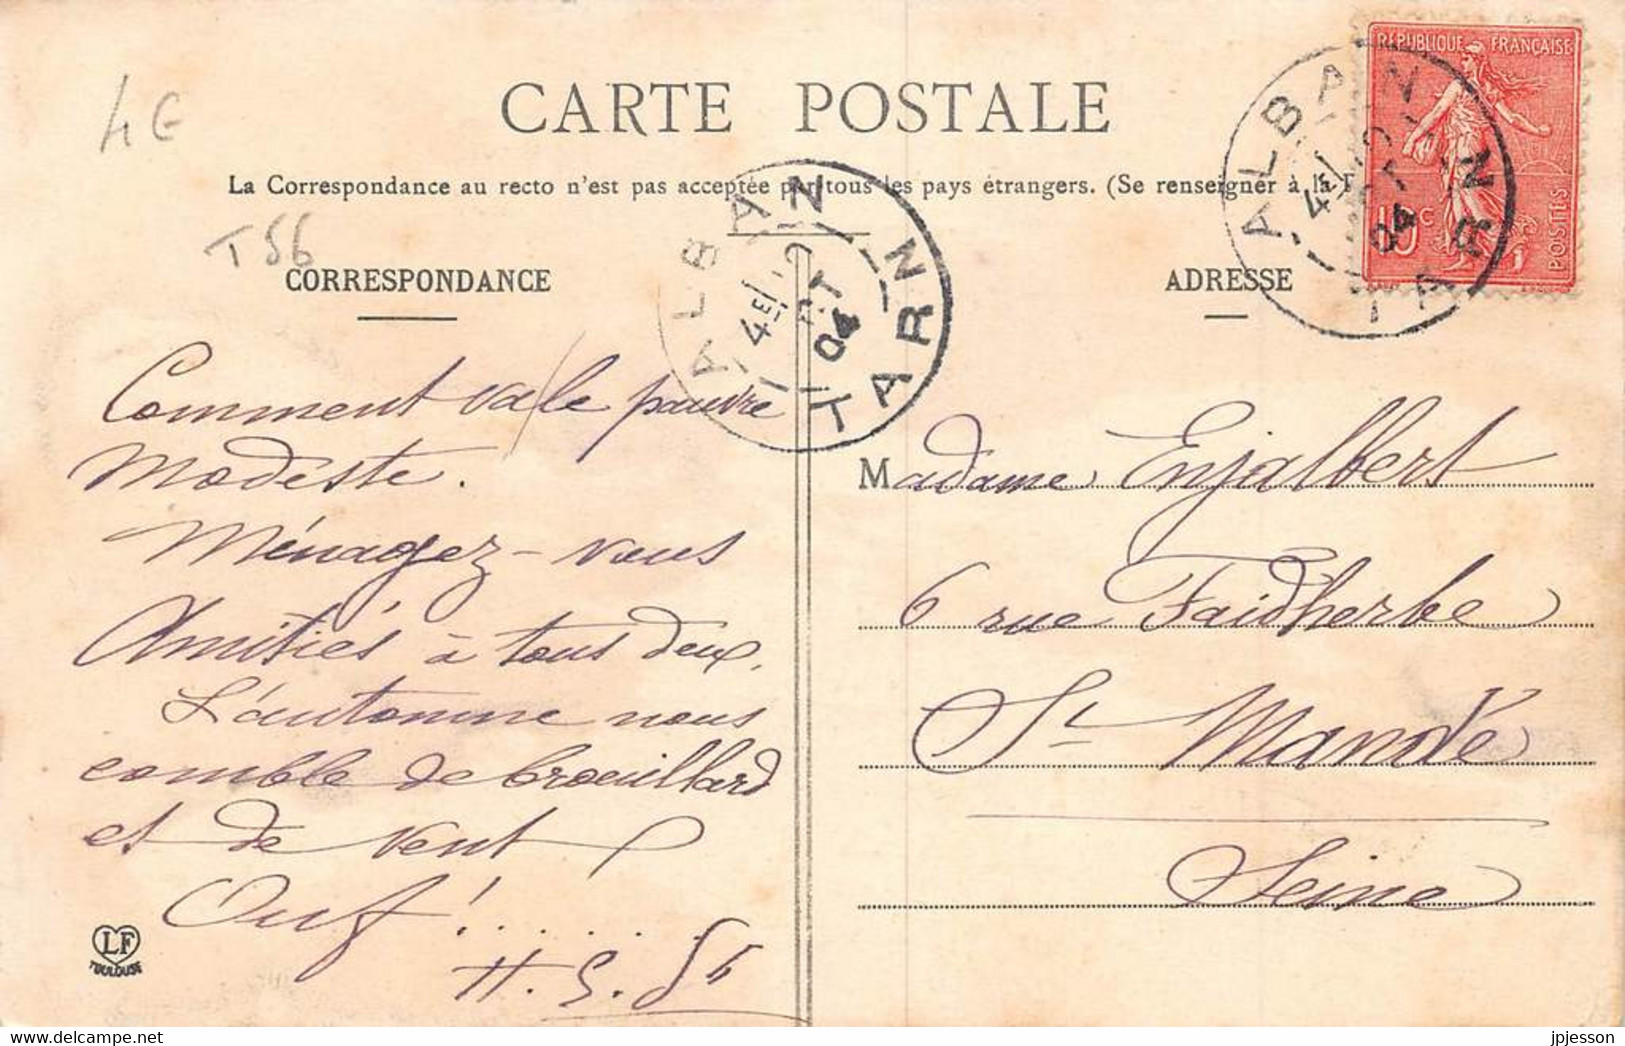 4€
CARTE POSTALE
La Correspondance au recto n'est pas acceptée par tous les pays étrangers. (Se renseigner à la
T 56
CORRESPONDANCE
ADRESSE
RÉPUBLIQUE FRANÇAISE
10c
POSTES
ALBAN
4E
OCT
04
TARN
ALBAN
4E
OCT
04
TARN
Comment va/le pauvre
Modeste.
Ménagez-vous
Amitiés à tous deux.
L'automne nous
comble de brouillard
et de vent
Ouf!......
Madame Enjalbert
6 rue Faidherbe
St Mandé
Seine
LF
TOULOUSE
jpjesson